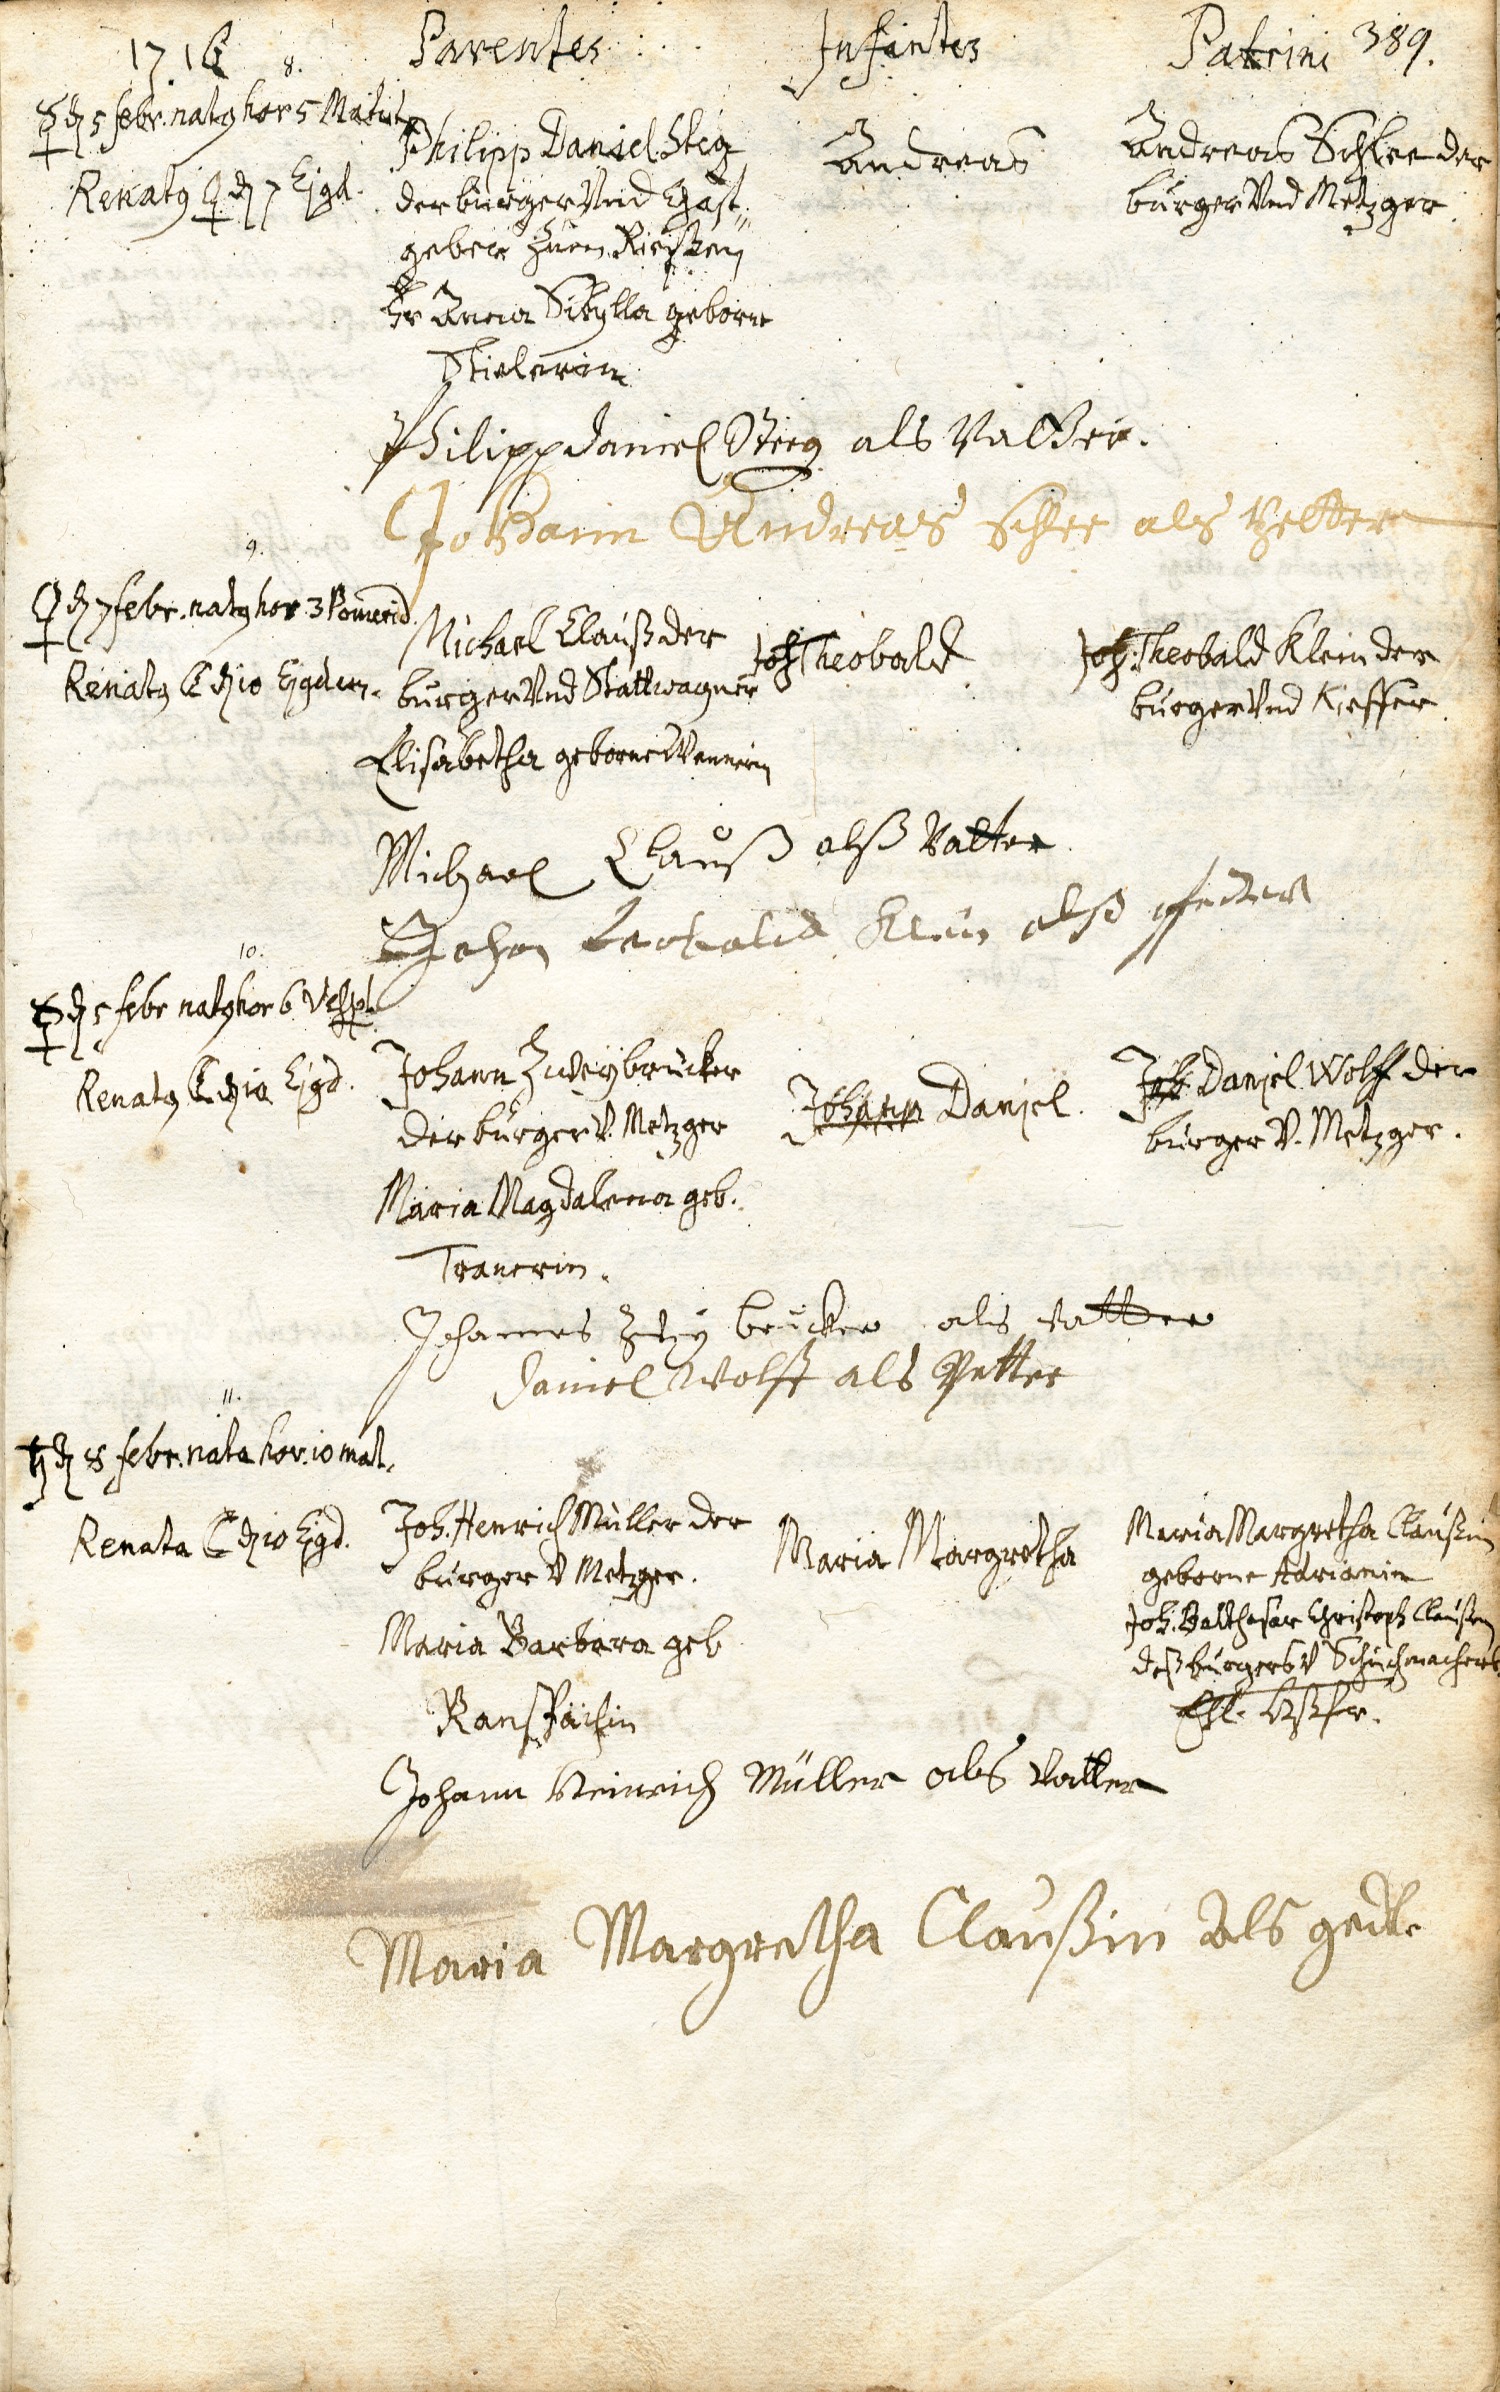 1716 Parentes Infantes Patrini 389.
8.
☿ d 5 febr. natq hor 5 Matut
Renatq ♀ d 7 Ejgd.
Philipp Daniel Steg
der burger Vnd Gast„
geber zum Riesen
Fr Anna Sibylla geborne
Stielerin
Andreas
Andreas Schlee der
burger Vnd Metzger.
Philipp daniel Steeg als Vatter.
Johann Andreas Schlee als Petter
9.
♀ d 7 febr. natq hor 3 Pomerid.
Renatq ☾ d 10 Ejgdem.
Michael Clauß der
burger Vnd Stattwagner
Elisabetha geborne Wennerin
Joh Theobald
Joh. Theobald Klein der
burger Vnd Kieffer.
Michael Clauß alß Vatter
Johan Teobald Klein alß pfetter
10.
☿ d 5 febr natq hor 6 Vespt.
Renatq ☾ d 10 Ejgd.
Johann Zweybrucker
der burger V. Metzger
Maria Magdalena geb.
Tranerin.
Johann Daniel.
Joh. Daniel Wolff der
burger V. Metzger.
Johannes Zwey brücker als vatter
Daniel Wolff als Petter
11.
♄ d 8 febr. nata hor. 10 mat.
Renata ☾ d 10 Ejgd.
Joh. Henrich Müller der
burger V Metzger.
Maria Barbara geb
Maria Margretha
Maria Margretha Claußin
geborne Adrianin
Joh. Balthasar Christoph Claußen
deß burgers V Schuchmachers
Ehl. Hßfr.
Johann Heinrich Müller als Vatter
Maria Margretha Claußin Als